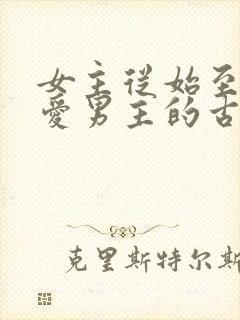 女主从始至
爱男主的古
克里斯特尔斯